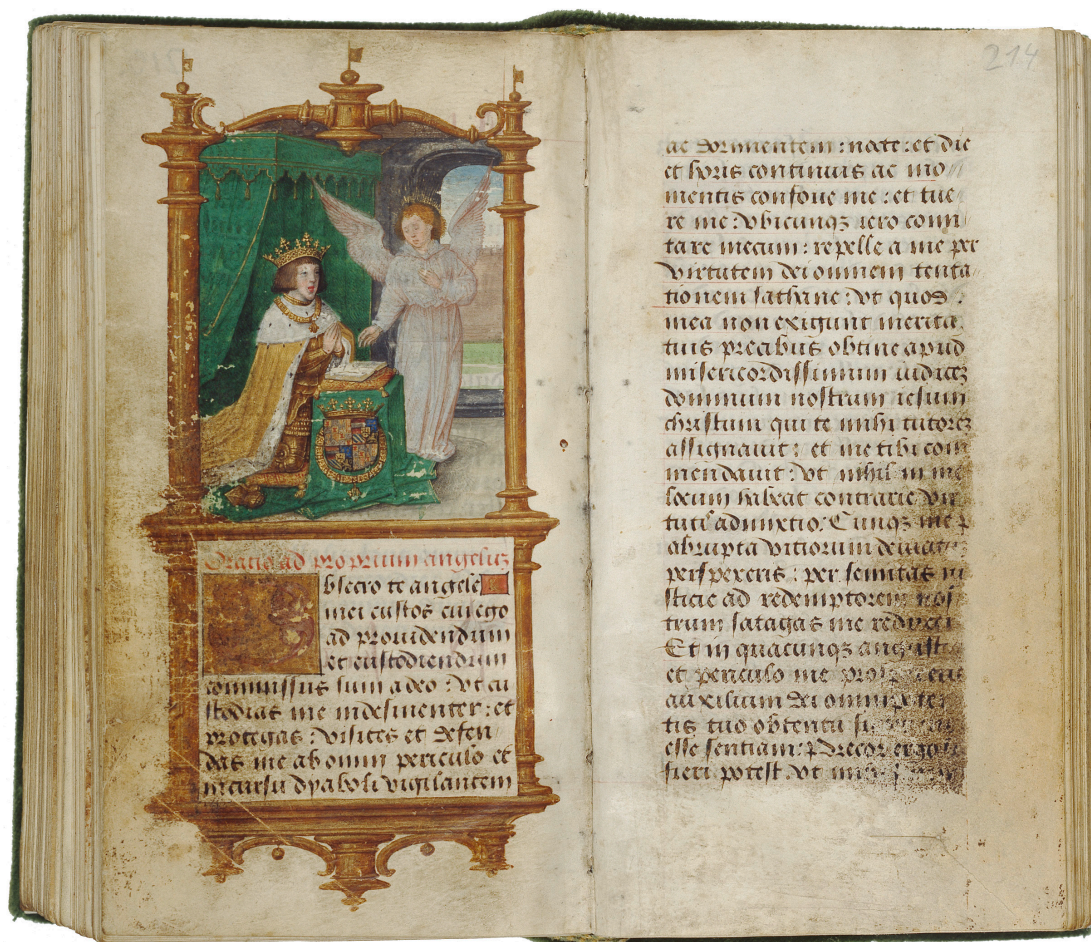 Oratio ad proprium angelum
Obsecro te angele
mei custos cui ego
ad prouidendum
et custodiendum
commissus sum a deo : vt cu
stodias me indesinenter : et
protegas : visites et defen
das me ab omni periculo et
incursu dyaboli vigilantem
214
ac dormientem : nocte : et die
et horis continuis ac mo
mentis confoue me : et tue
re me : vbicunqꝫ iero comi
tare mecum : repelle a me per
virtutem dei omnem tenta
tionem sathane : vt quos
mea non exigunt merita
tuis precibus obtine apud
misericordissimum iudicē
dominum nostrum iesum
christum qui te mihi tutorē
assignauit : et me tibi com
mendauit : vt nihil in me
locum habeat contrarie vir
tuti adimixtio. Cunqꝫ me p
abrupta vitiorum deuiare
perspexeris : per semitas iu
sticie ad redemptorem nos
trum satagas me reducere
Et in quacunqꝫ angustia
et periculo me
auxilium dei omnipoten
tis tuo obtentu
esse sentiam : Precor
fieri potest vt mihi